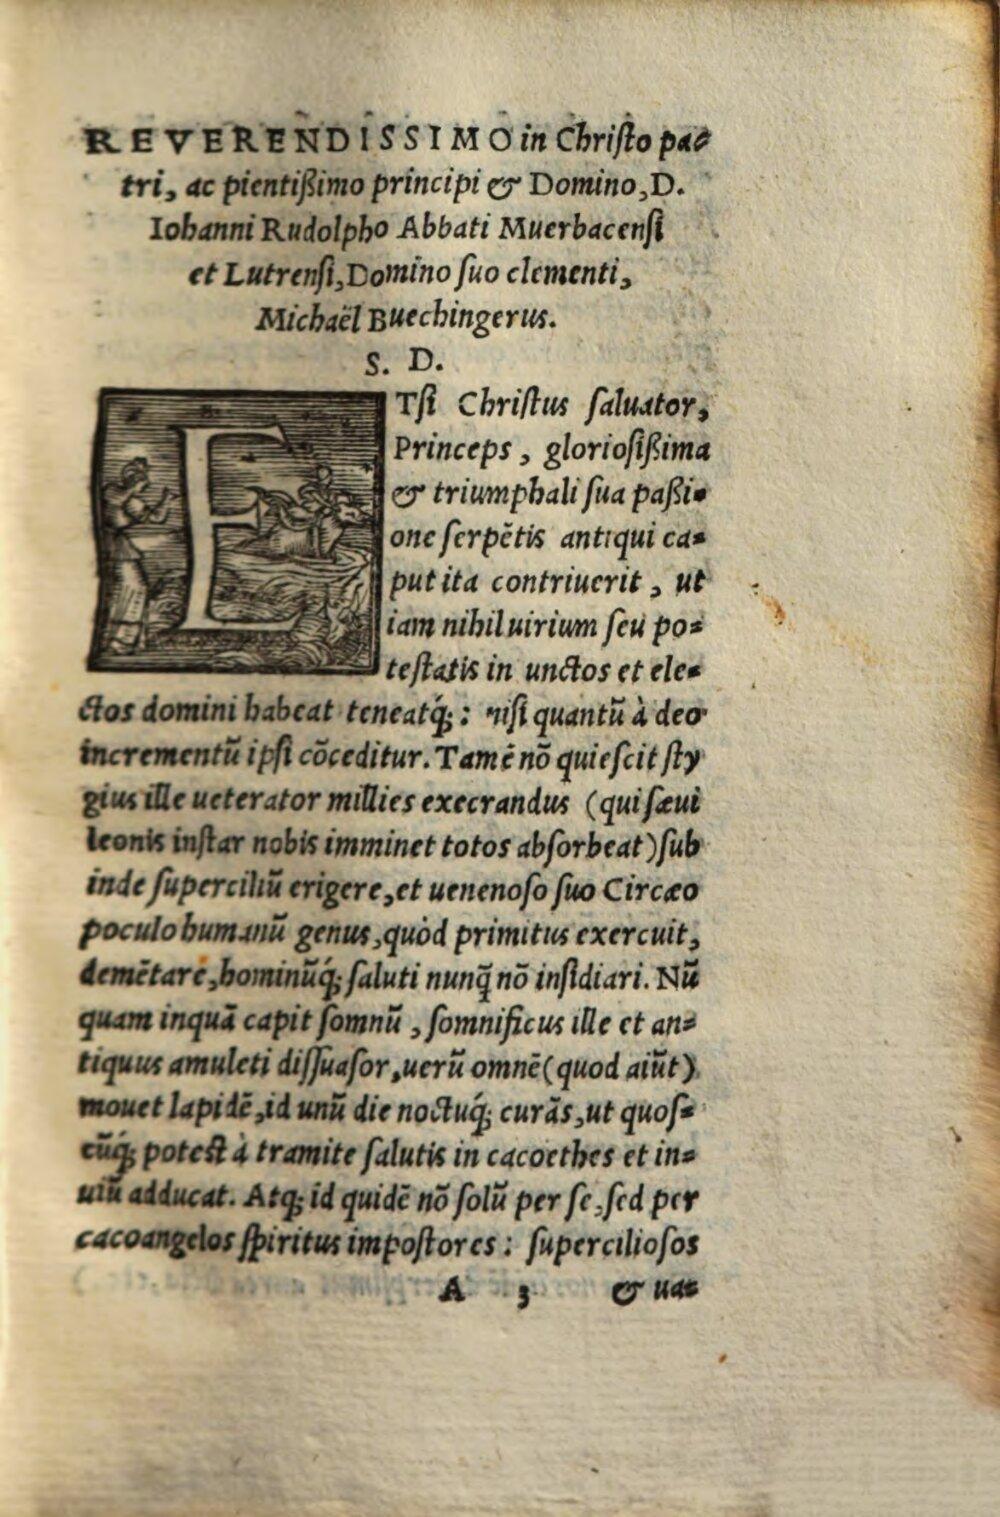 REVERENDISSIMO in Christo pa-
tri, ac pientißimo principi & Domino, D.
Iohanni Rudolpho Abbati Muerbacensi
et Lutrensi, Domino suo clementi,
Michaël Buechingerus.
S. D.
ETſi Chriſtus ſaluator,
Princeps, glorioſißima
& triumphali ſua paßi-
one ſerpẽtis antiqui ca-
put ita contriuerit, ut
iam nihil uirium ſeu po-
teſtatis in unctos et ele-
ctos domini habeat teneatq́;: niſi quantũ à deo
incrementũ ipſi cõceditur. Tamẽ nõ quieſcit ſty
gius ille ueterator millies execrandus (qui ſæui
leonis inſtar nobis imminet totos abſorbeat) ſub
inde ſuperciliũ erigere, et uenenoſo ſuo Circæo
poculo humanũ genus, quòd primitus exercuit,
demẽtare, hominũq́; ſaluti nunq̃ nõ inſidiari. Nũ
quam inquã capit ſomnũ, ſomnificus ille et an-
tiquus amuleti diſſuaſor, uerũ omnẽ (quod aiũt)
mouet lapidẽ, id unũ die noctuq́; curãs, ut quoſ-
cũq́; poteſt à tramite ſalutis in cacoethes et in-
uiũ adducat. Atq; id quidẽ nõ ſolũ per ſe, ſed per
cacoangelos ſpiritus impoſtores: ſupercilioſos
A 3 & ua-